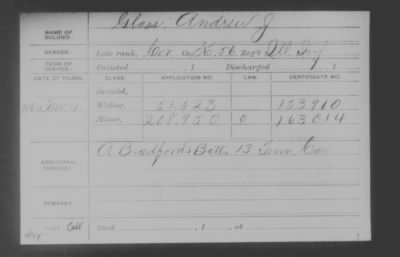 NAME OF SOLDIER: Glass, Andrew J
SERVICE: Late rank, Cor Co. K, 56 Reg't Ill Inf
TERM OF SERVICE: Enlisted , 1 Discharged , 1
DATE OF FILING. CLASS. APPLICATION NO. LAW. CERTIFICATE NO.
Invalid,
Widow, 51,523 153910
Minor, 208,950 0 163014
ADDITIONAL SERVICES: A Bradford's Batt. 13 Tenn Cav
REMARKS:
Died , 1 , at